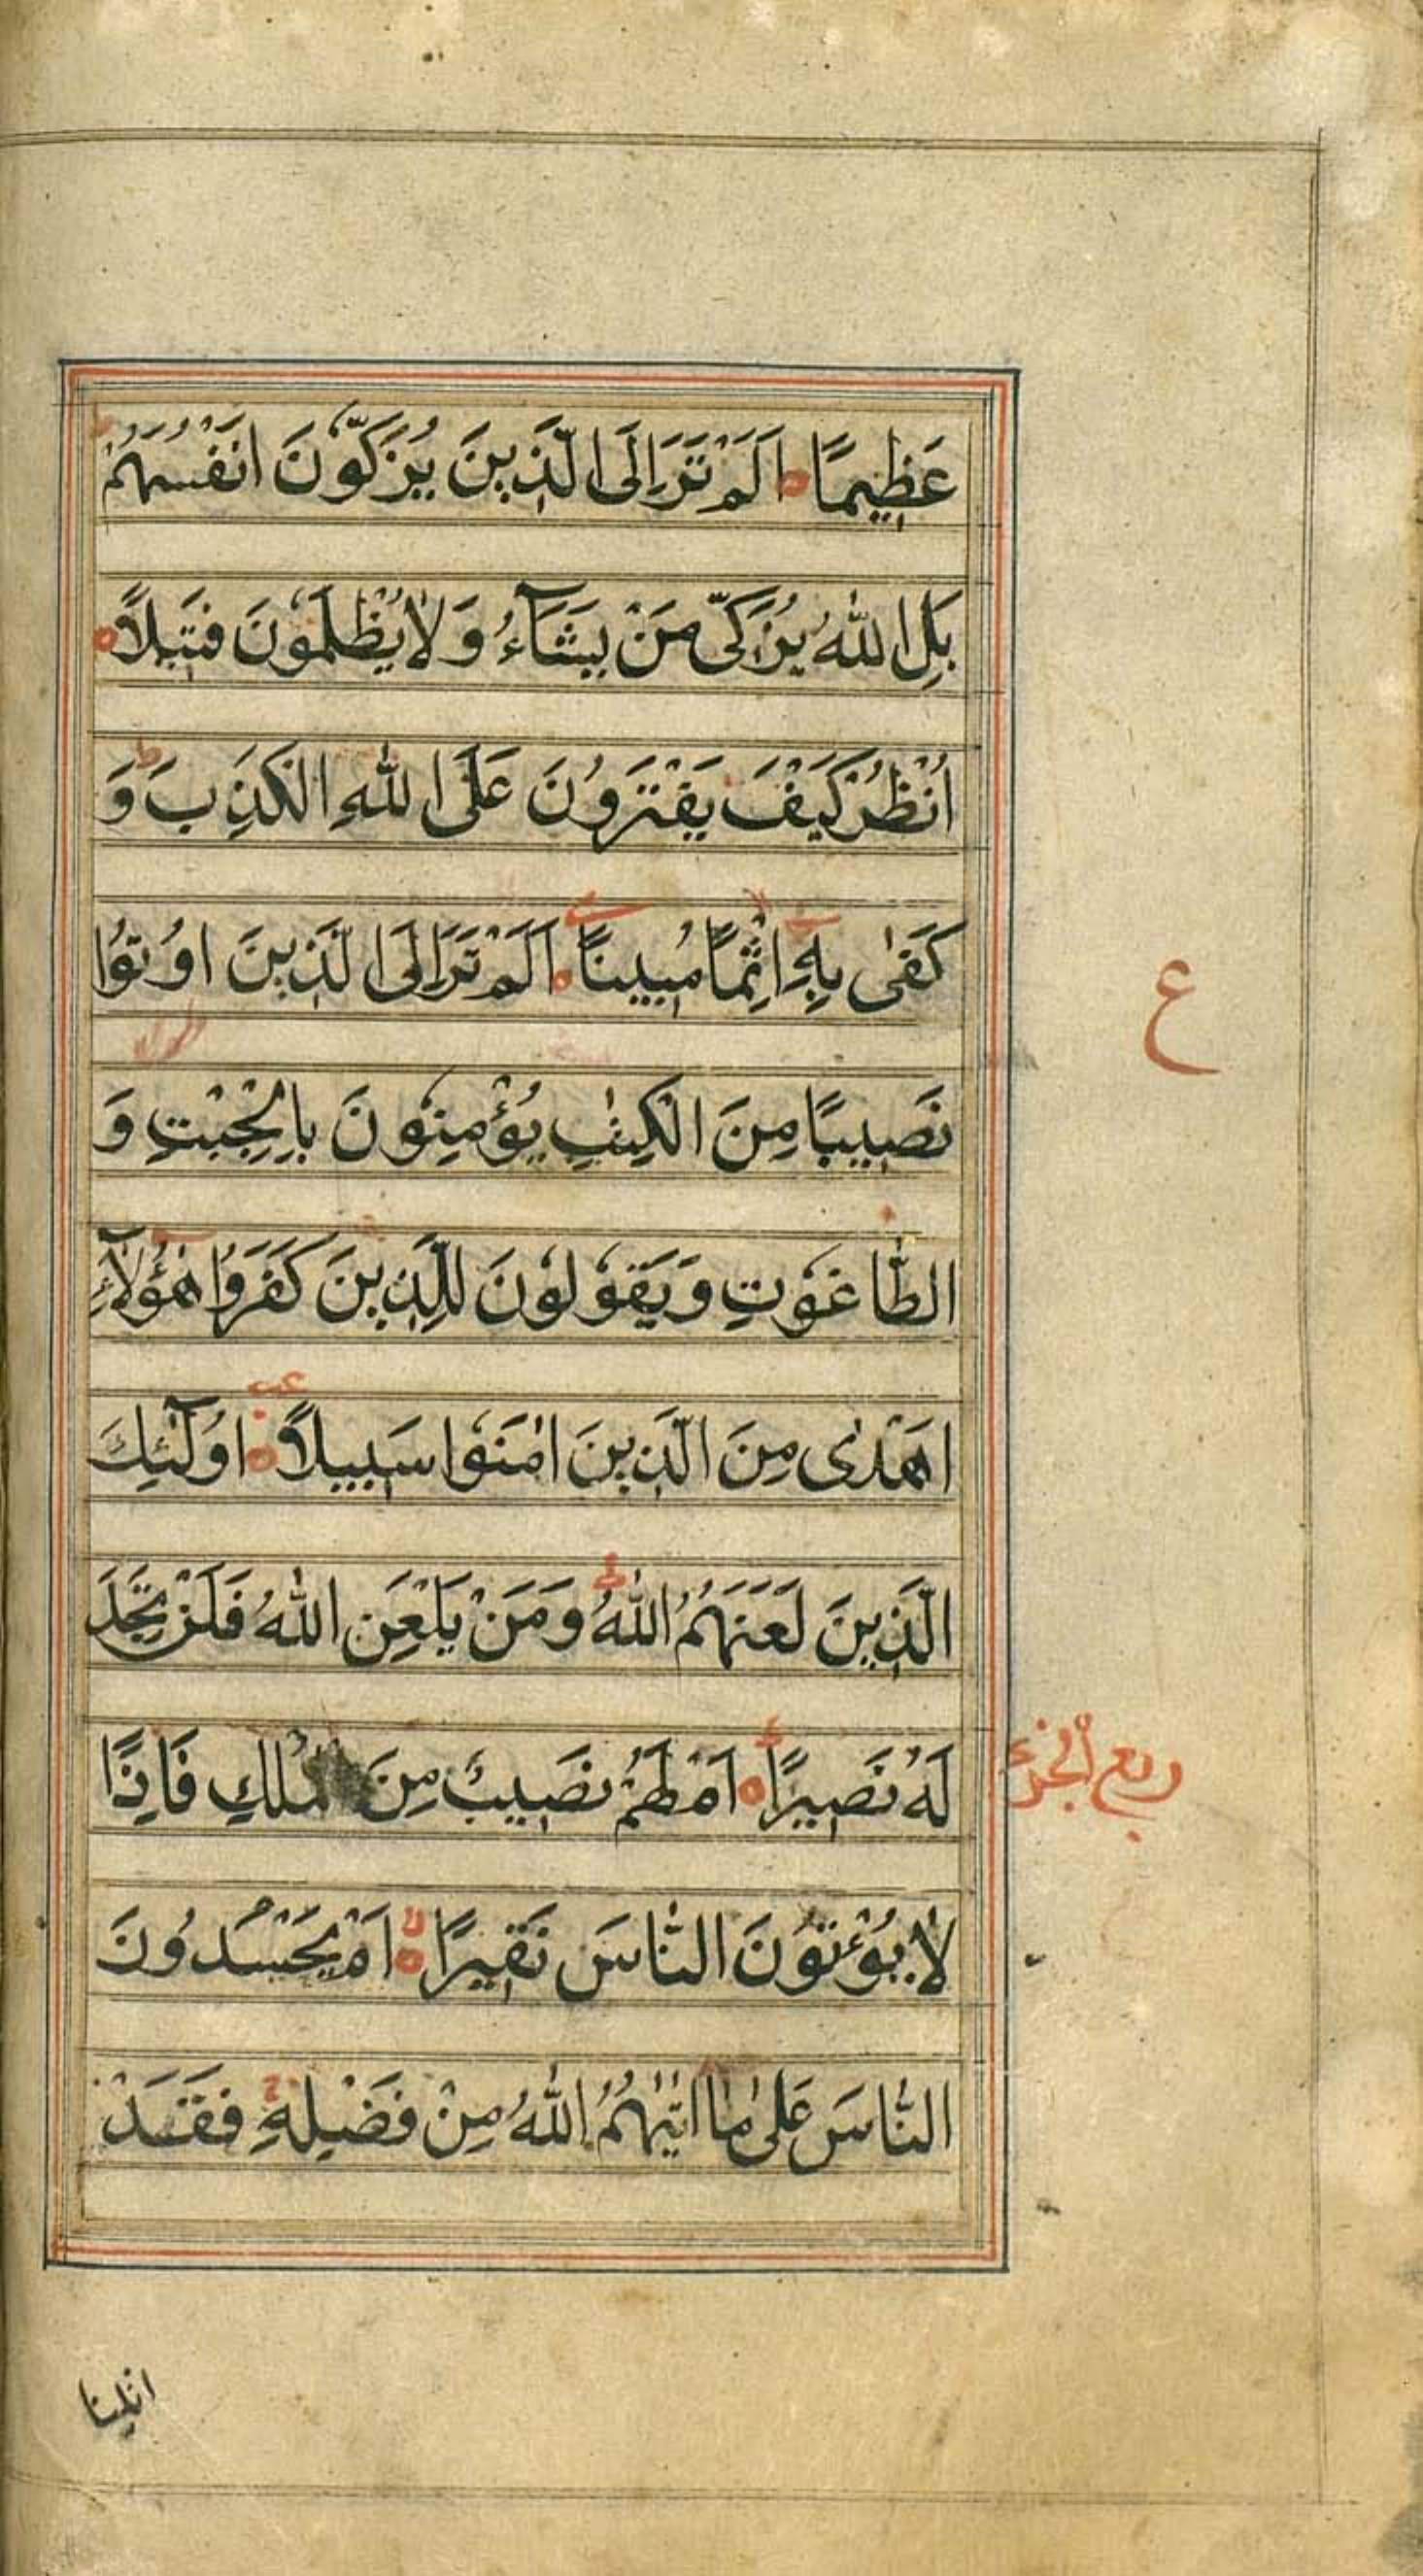 عَظِيمًا ه اَلَمْ تَرَ اِلَى الَّذِينَ يُزَكُّونَ اَنْفُسَهُمْ ط
بَلِ اللّٰهُ يُزَكِّى مَنْ يَشَآءُ وَلَا يُظْلَمُونَ فَتِيلًا ه
اُنْظُرْ كَيْفَ يَفْتَرُونَ عَلَى اللّٰهِ الْكَذِبَ ط وَ
كَفٰى بِهِ اِثْمًا مُبِينًا ه اَلَمْ تَرَ اِلَى الَّذِينَ اُوتُوا
ع
نَصِيبًا مِنَ الْكِتٰبِ يُؤْمِنُونَ بِالْجِبْتِ وَ
الطَّاغُوتِ وَيَقُولُونَ لِلَّذِينَ كَفَرُوا هٰؤُلَآءِ
اَهْدٰى مِنَ الَّذِينَ اٰمَنُوا سَبِيلًا ه اُولٰٓئِكَ
الَّذِينَ لَعَنَهُمُ اللّٰهُ ط وَمَنْ يَلْعَنِ اللّٰهُ فَلَنْ تَجِدَ
لَهُ نَصِيرًا ه اَمْ لَهُمْ نَصِيبٌ مِنَ الْمُلْكِ فَاِذًا
ربع الجزء
لَا يُؤْتُونَ النَّاسَ نَقِيرًا ه لا اَمْ يَحْسُدُونَ
النَّاسَ عَلٰى مَا اٰتٰىهُمُ اللّٰهُ مِنْ فَضْلِهِ ج فَقَدْ
اتينا